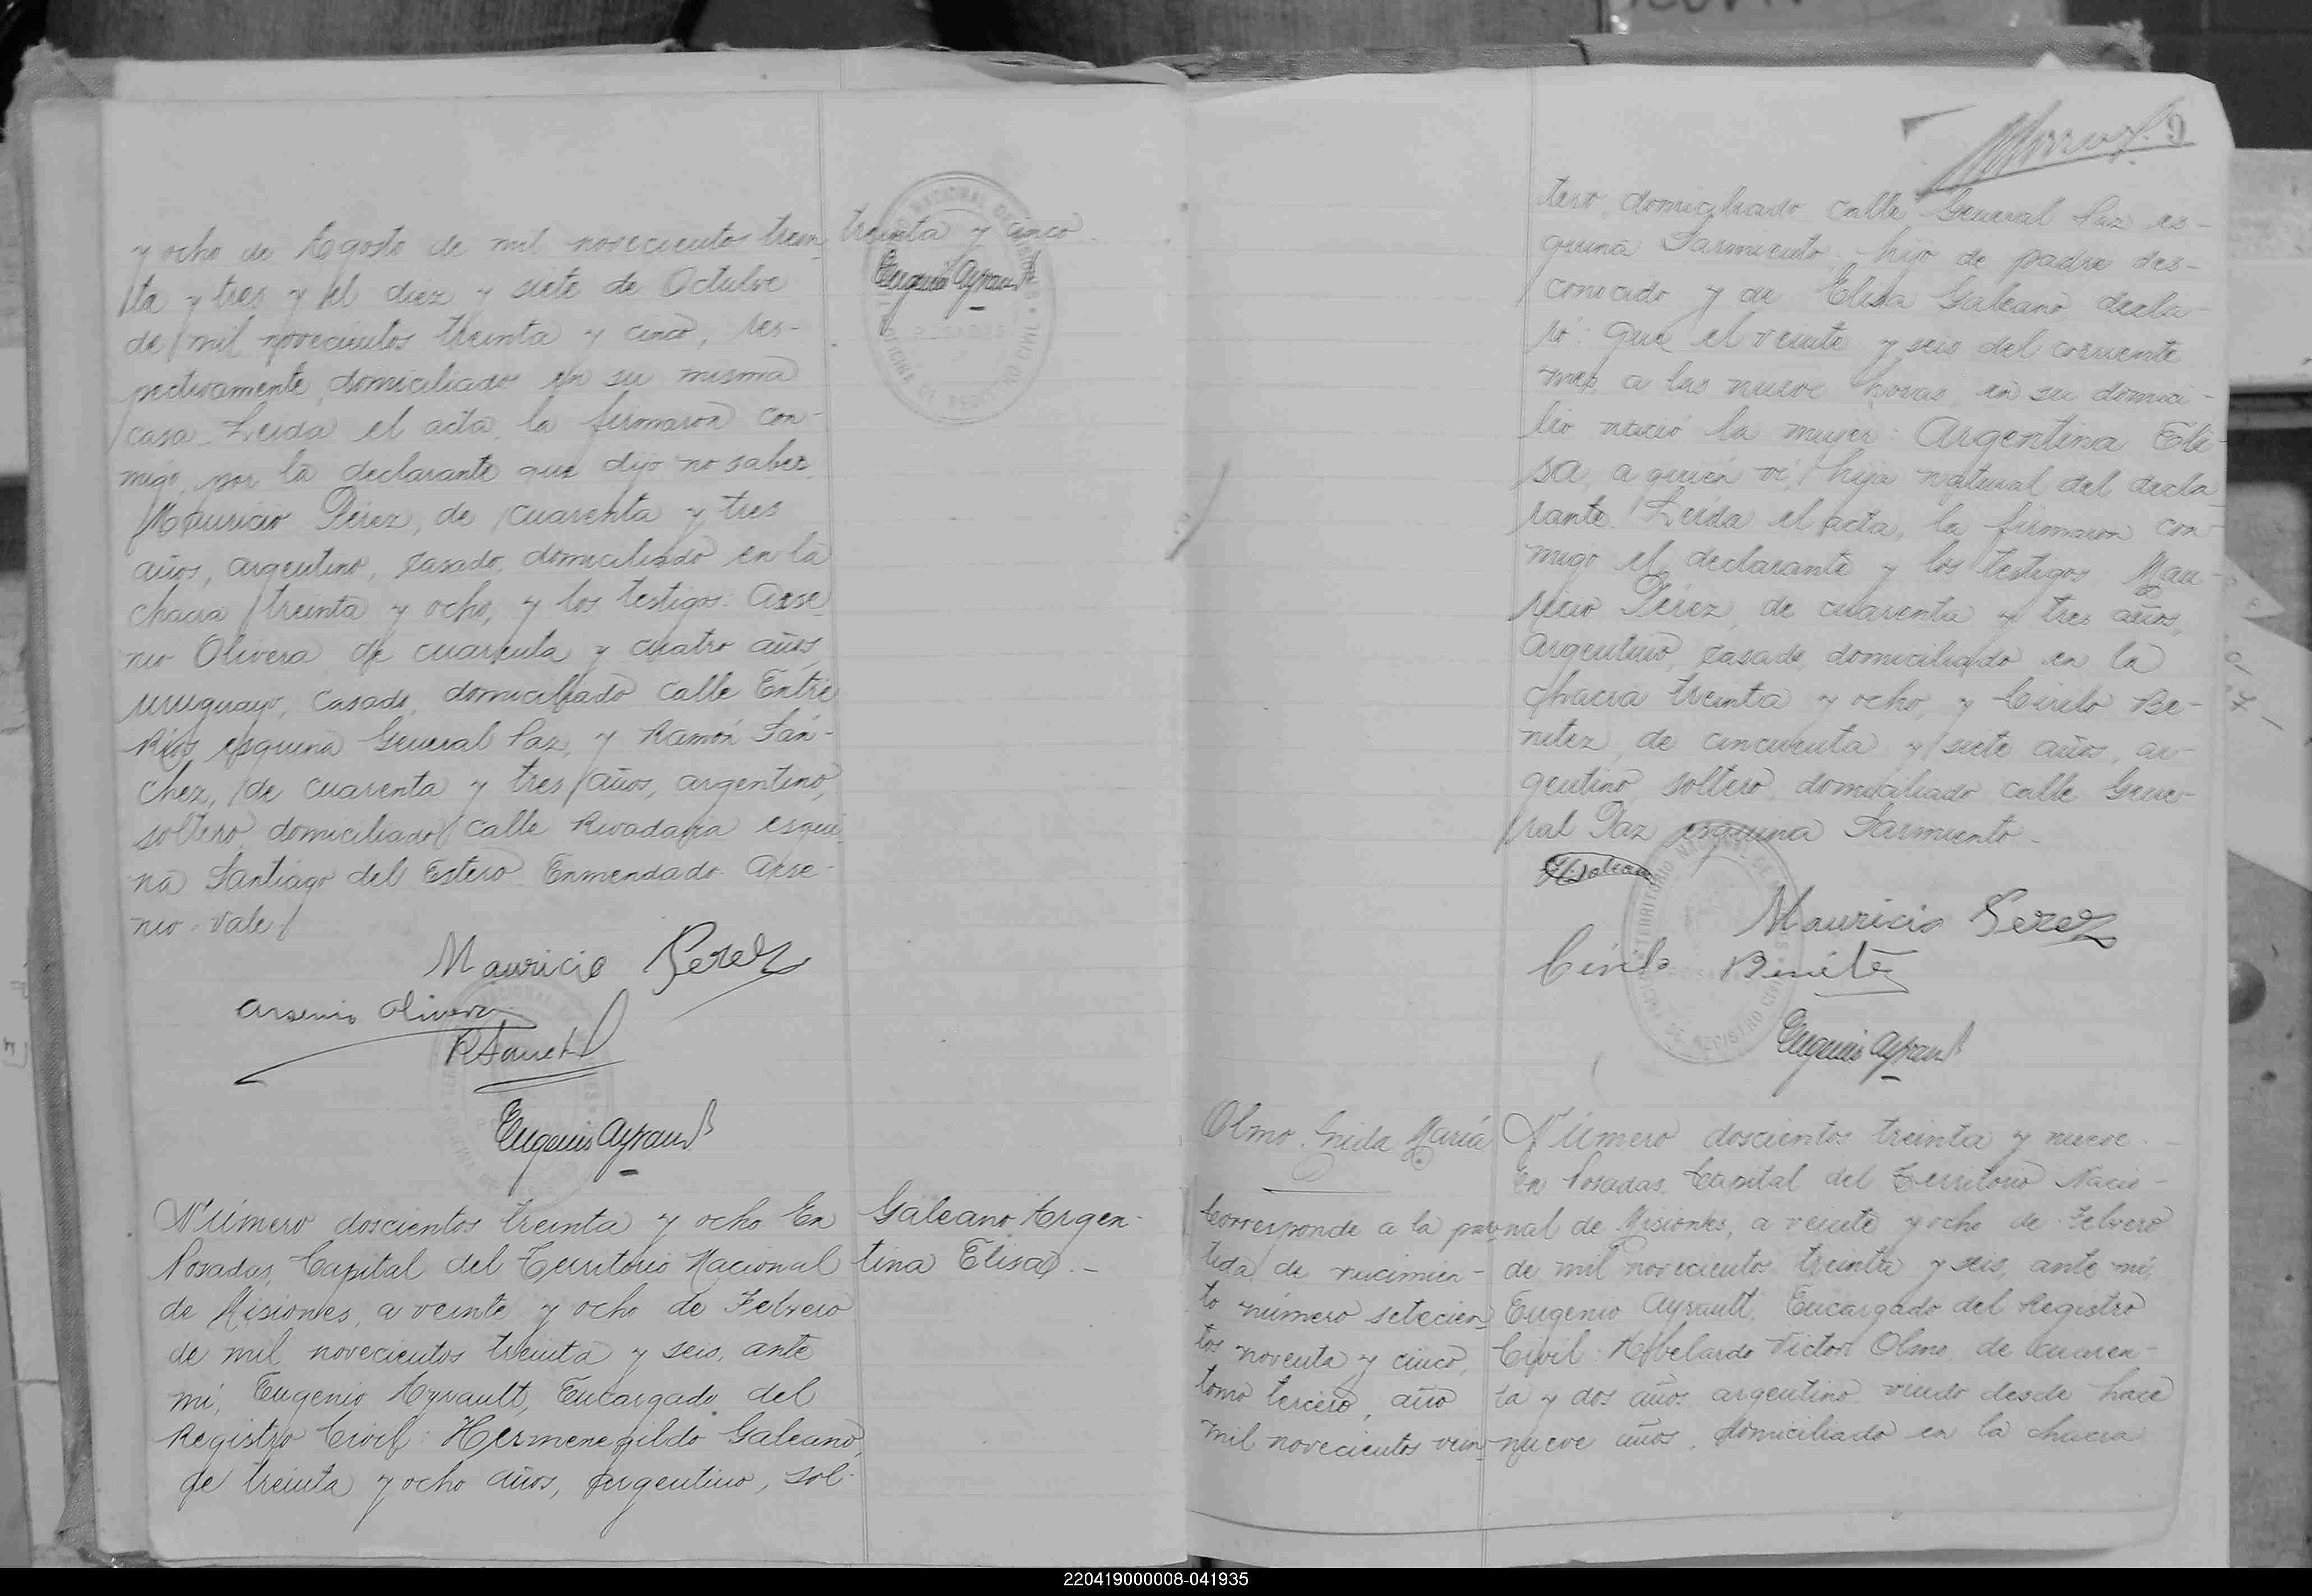 y ocho de Agosto de mil novecientos trein
ta y tres y el diez y siete de Octubre
de mil novecientos treinta y cinco, res-
pectivamente, domiciliados en su misma
casa. Leída el acta, la firmaron con-
migo, por la declarante que dijo no saber
Mauricio Pérez, de cuarenta y tres
años, argentino, casado, domiciliado en la
chacra treinta y ocho, y los testigos: Arse
nio Olivera de cuarenta y cuatro años,
uruguayo, casado, domiciliado calle Entre
Ríos esquina General Paz, y Ramón Sán-
chez, de cuarenta y tres años, argentino,
soltero domiciliado calle Rivadavia esqui
na Santiago del Estero. Enmendado: Arse-
nio - Vale
Mauricio Perez
Arsenio Olivera
Eugenio Ayrault
treinta y cinco
Eugenio Ayrault
Número doscientos treinta y ocho En
Posadas, Capital del Territorio Nacional
de Misiones, a veinte y ocho de Febrero
de mil novecientos treinta y seis, ante
mí, Eugenio Ayrault, Encargado del
Registro Civil: Hermenegildo Galeano,
de treinta y ocho años, argentino, sol-
Galeano Argen-
tina Elisa.-
9
tero domiciliado calle General Paz es-
quina Sarmiento, hijo de padre des-
conocido y de Elisa Galeano decla-
ró: Que el veinte y seis del corriente
mes, a las nueve horas, en su domici-
lio nació la mujer: Argentina Eli-
sa, a quien ví, hija natural del decla
rante. Leída el acta, la firmaron con
migo el declarante y los testigos Mau-
ricio Pérez, de cuarenta y tres años,
argentino, casado, domiciliado en la
chacra treinta y ocho, y Cirilo Be-
nitez, de cincuenta y siete años, ar-
gentino, soltero, domiciliado calle Gene-
ral Paz esquina Sarmiento.
Mauricio Perez
Cirilo Benitez
Eugenio Ayrault
Olmo María
Corresponde a la par
tida de nacimien-
to número setecien
tos noventa y cinco,
tomo tercero, año
mil novecientos vein
Número doscientos treinta y nueve.-
En Posadas, Capital del Territorio Nacio-
nal de Misiones, a veinte y ocho de Febrero
de mil novecientos treinta y seis, ante mí,
Eugenio Ayrault, Encargado del Registro
Civil: Abelardo Victor Olmo, de cuaren-
ta y dos años argentino viudo desde hace
nueve años, domiciliado en la chacra
220419000008-041935